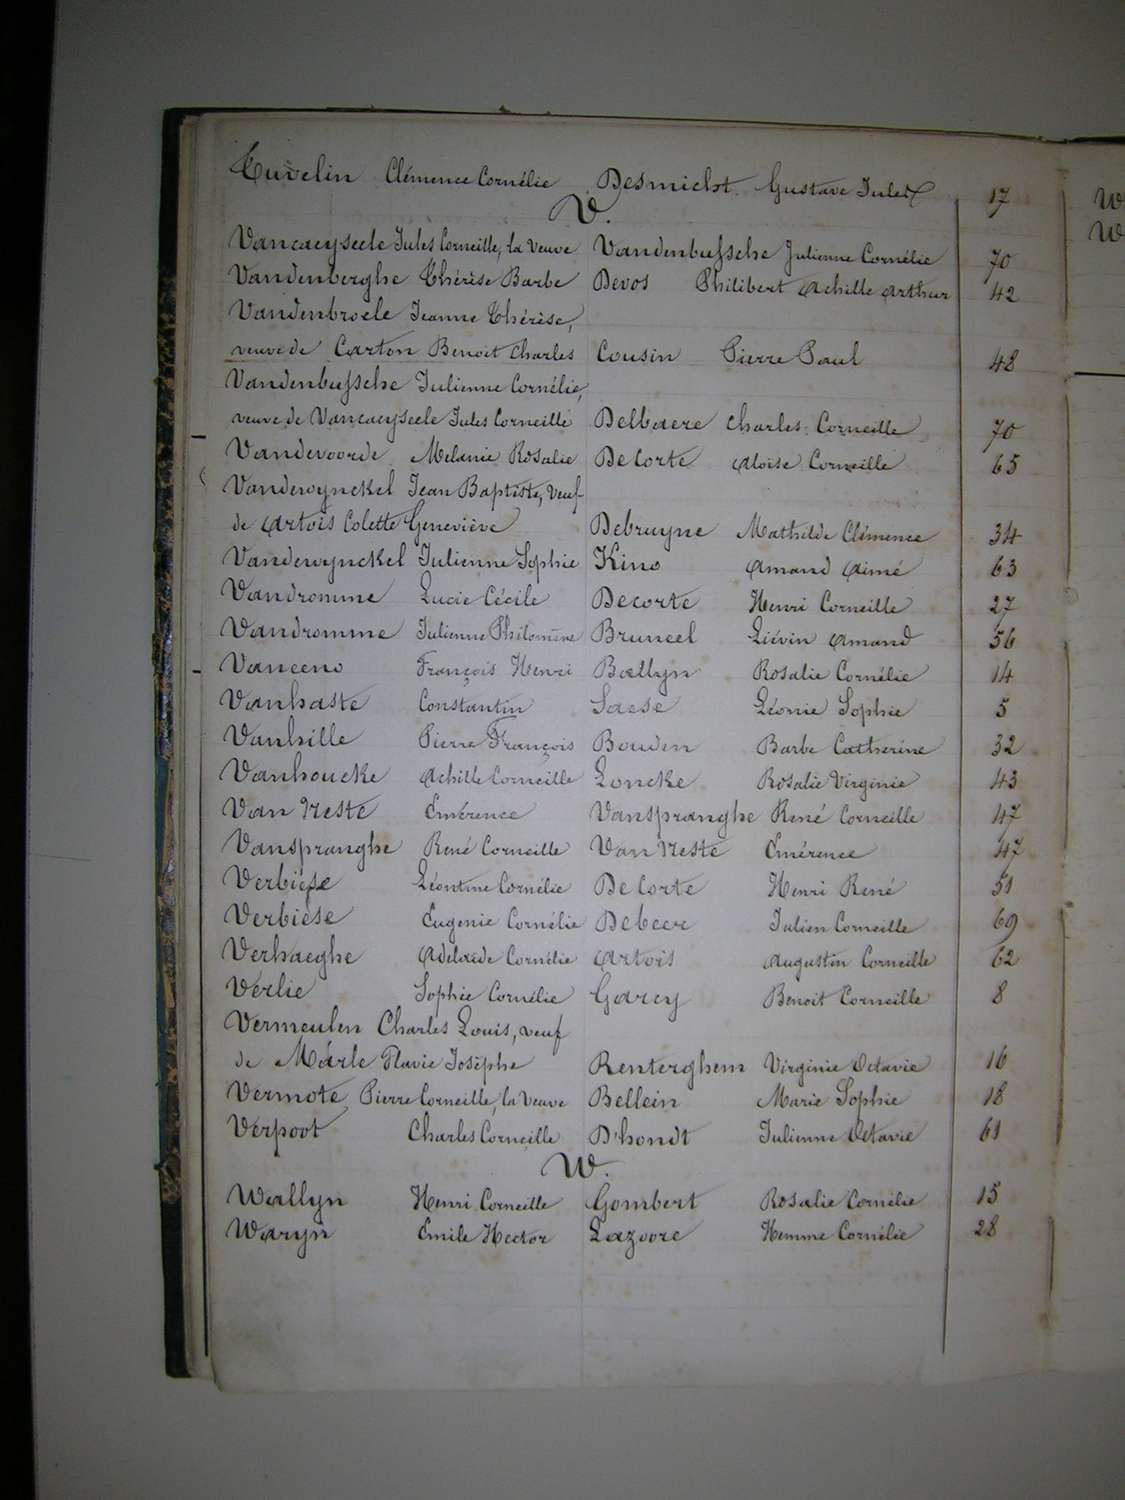 Tuvelin Clémence Cornélie Desmidt Gustave Jules 17
V.
Vancaeyseele Jules Corneille, la Veuve Vandenbussche Julienne Cornélie 70
Vandenberghe Thérèse Barbe Devos Philibert Achille Arthur 42
Vandenbroele Jeanne Thérèse,
veuve de Carton Benoit Charles Cousin Pierre Paul 48
Vandenbussche Julienne Cornélie,
veuve de Vancaeyseele Jules Corneille Delbaere Charles Corneille 70
Vandevoorde Mélanie Rosalie Decorte Aloïse Corneille 65
Vandewynckel Jean Baptiste, veuf
de Artois Colette Geneviève Debruyne Mathilde Clémence 34
Vandewynckel Julienne Sophie Kino Amand Aimé 63
Vandromme Lucie Cécile Decorte Henri Corneille 27
Vandromme Julienne Philomène Bruneel Liévin Amand 56
Vaneeno François Henri Baellyn Rosalie Cornélie 14
Vanhaste Constantin Saese Léonie Sophie 5
Vanhille Pierre François Bouden Barbe Catherine 32
Vanhoucke Achille Corneille Loncke Rosalie Virginie 43
Van Neste Emérence Vanspranghe René Corneille 47
Vanspranghe René Corneille Van Neste Emérence 47
Verbièse Léontine Cornélie Decorte Henri René 51
Verbièse Eugénie Cornélie Debeer Julien Corneille 69
Verhaeghe Adelaïde Cornélie Artois Augustin Corneille 62
Verlie Sophie Cornélie Garcy Benoit Corneille 8
Vermeulen Charles Louis, veuf
de Märle Flavie Josèphe Renterghem Virginie Octavie 16
Vermote Pierre Corneille, la Veuve Bellein Marie Sophie 18
Verpoot Charles Corneille D'hondt Julienne Octavie 61
W.
Wallyn Henri Corneille Gombert Rosalie Cornélie 15
Waryn Emile Hector Lazoore Hemme Cornélie 28
W
W